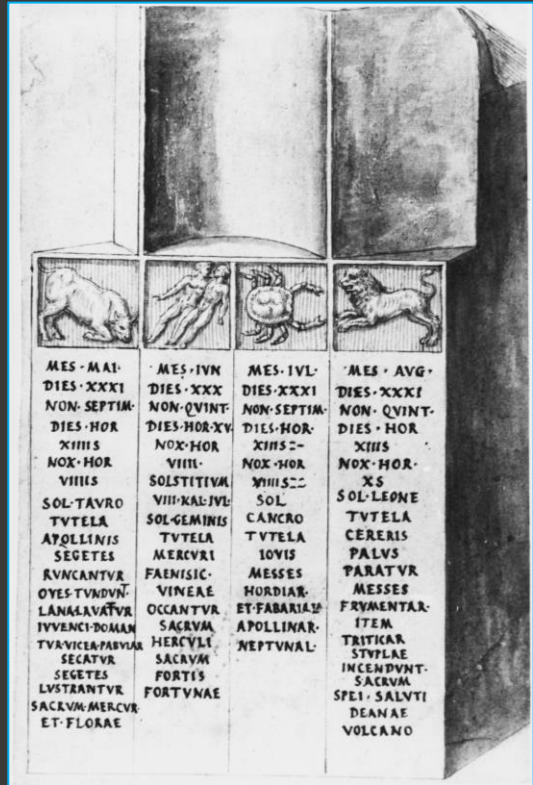 MES·MAI·
DIES·XXXI
NON·SEPTIM·
DIES·HOR
XIIIIS
NOX·HOR
VIIIIS
SOL·TAVRO
TVTELA
APOLLINIS
SEGETES
RVNCANTVR
OVES·TVNDVNT·
LANA·LAVATVR
IVVENCI·DOMAN
TVR·VICEA·PABVLAR
SECATVR
SEGETES
LVSTRANTVR
SACRVM·MERCVR·
ET·FLORAE
MES·IVN
DIES·XXX
NON·QVINT·
DIES·HOR·XV·
NOX·HOR
VIIII·
SOLSTITIVM
VIII·KAL·IVL·
SOL·GEMINIS
TVTELA
MERCVRI
FAENISIC·
VINEAE
OCCANTVR
SACRVM
HERCVLI
SACRVM
FORTIS
FORTVNAE
MES·IVL·
DIES·XXXI
NON·SEPTIM·
DIES·HOR·
NOX·HOR
SOL
CANCRO
TVTELA
IOVIS
MESSES
HORDIAR·
ET·FABARIAE
APOLLINAR·
NEPTVNAL·
MES·AVG·
DIES·XXXI
NON·QVINT·
DIES·HOR
XIIIS
NOX·HOR·
XS
SOL·LEONE
TVTELA
CERERIS
PALVS
PARATVR
MESSES
FRVMENTAR·
ITEM
TRITICAR
STVPLAE
INCENDVNT·
SACRVM
SPEI·SALVTI
DEANAE
VOLCANO